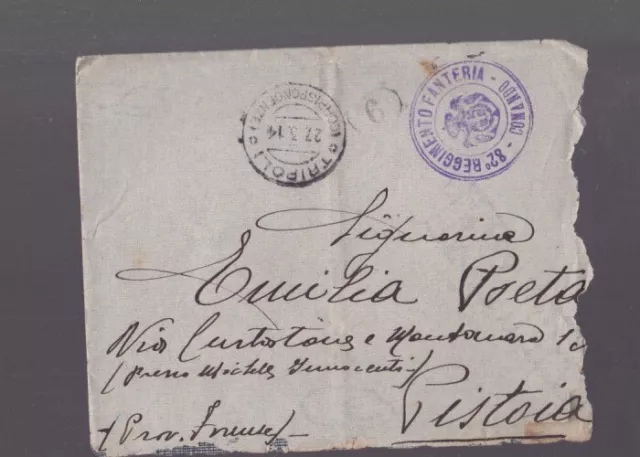 (CORRISPONDENZE)
TRIPOLI
27.3.14
(6)
82º REGGIMENTO FANTERIA - COMANDO -
Signorina
Emilia Poeta
Via Curtatone e Montanara 10
(presso Michele Innocenti)
Pistoia
(Prov. Firenze)